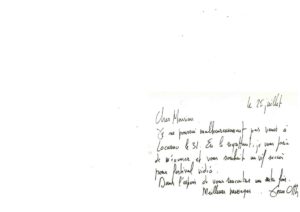 le 25 juillet
Cher Monsieur
Je ne pourrai malheureusement pas venir à
Locarno le 31. En le regrettant, je vous prie
de m'excuser, et vous souhaite un vif succès
pour festival vidéo.
Dans l'espoir de vous rencontrer une autre fois.
Meilleurs messages